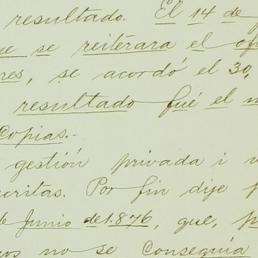 resultado. El 14 de
se reiterara el
se acordó el 30,
resultado fué el
Copias.
gestión privada i
Por fin dije
Junio de 1.876, que,
no se conseguia